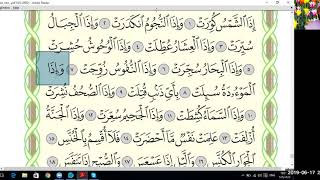 إِذَا الشَّمْسُ كُوِّرَتْ ١ وَإِذَا النُّجُومُ انكَدَرَتْ ٢ وَإِذَا الْجِبَالُ
سُيِّرَتْ ٣ وَإِذَا الْعِشَارُ عُطِّلَتْ ٤ وَإِذَا الْوُحُوشُ حُشِرَتْ
٥ وَإِذَا الْبِحَارُ سُجِّرَتْ ٦ وَإِذَا النُّفُوسُ زُوِّجَتْ ٧ وَإِذَا
الْمَوْءُودَةُ سُئِلَتْ ٨ بِأَيِّ ذَنبٍ قُتِلَتْ ٩ وَإِذَا الصُّحُفُ نُشِرَتْ
١٠ وَإِذَا السَّمَاءُ كُشِطَتْ ١١ وَإِذَا الْجَحِيمُ سُعِّرَتْ ١٢ وَإِذَا الْجَنَّةُ
أُزْلِفَتْ ١٣ عَلِمَتْ نَفْسٌ مَّا أَحْضَرَتْ ١٤ فَلَا أُقْسِمُ بِالْخُنَّسِ
١٥ الْجَوَارِ الْكُنَّسِ ١٦ وَاللَّيْلِ إِذَا عَسْعَسَ ١٧ وَالصُّبْحِ إِذَا تَنَفَّسَ ١٨
2019-06-17